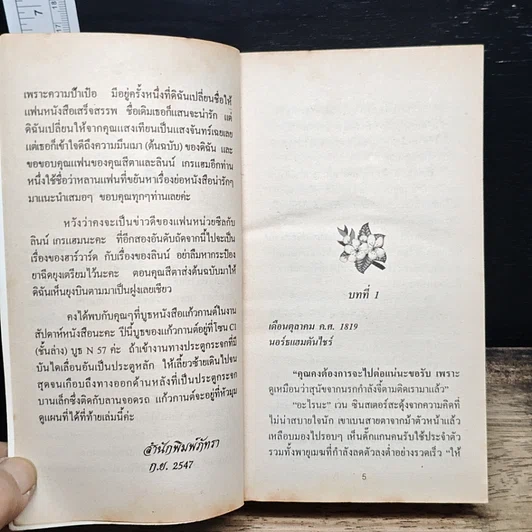 เพราะความป้ำเป๋อ มีอยู่ครั้งหนึ่งที่ดิฉันเปลี่ยนชื่อให้
แฟนหนังสือเสร็จสรรพ ชื่อเดิมเธอก็แสนจะน่ารัก แต่
ดิฉันเปลี่ยนให้จากคุณแสงเทียนเป็นแสงจันทร์เฉยเลย
แต่เธอก็เข้าใจดีถึงความมึนเมา (ต้นฉบับ) ของดิฉัน และ
ขอขอบคุณแฟนของคุณสีตาและลินน์ เกรแฮมอีกท่าน
หนึ่งใช้ชื่อว่าหลานแฟนที่ขยันหาเรื่องย่อหนังสือน่ารักๆ
มาแนะนำเสมอๆ ขอบคุณทุกๆท่านเลยค่ะ
หวังว่าคงจะเป็นข่าวดีของแฟนหน่วยซีลกับ
ลินน์ เกรแฮมนะคะ ที่อีกสองอันดับถัดจากนี้ไปจะเป็น
เรื่องของฮาร์วาร์ด กับเรื่องของลินน์ อย่าลืมหากระป๋อง
ยาฉีดยุงเตรียมไว้นะคะ ตอนคุณสีตาส่งต้นฉบับมาให้
ดิฉันเห็นยุงบินตามมาเป็นฝูงเลยเชียว
คงได้พบกับคุณๆที่บูธหนังสือแก้วกานต์ในงาน
สัปดาห์หนังสือนะคะ ปีนี้บูธของแก้วกานต์อยู่ที่โซน C1
(ชั้นล่าง) บูธ N 57 ค่ะ ถ้าเข้างานทางประตูกระจกที่มี
บันไดเลื่อนอันเป็นประตูหลัก ให้เลี้ยวซ้ายเดินไปจน
สุดจนเกือบถึงทางออกด้านหลังที่เป็นประตูกระจก
บานเล็กซึ่งติดกับลานจอดรถ แก้วกานต์จะอยู่ที่หัวมุม
ดูแผนที่ได้ที่ท้ายเล่มนี้ค่ะ
สำนักพิมพ์ภัทรา
ก.ย. 2547
บทที่ 1
เดือนตุลาคม ค.ศ. 1819
นอร์ธแฮมตันไชร์
"คุณคงต้องการจะไปต่อแน่นะขอรับ เพราะ
ดูเหมือนว่าสุนัขจากนรกกำลังจี้ตามติดเรามาแล้ว"
"อะไรนะ" เวน ซินสเตอร์สะดุ้งจากความคิดที่
ไม่น่าสบายใจนัก เขาเบนสายตาจากม้าตัวหน้าแล้ว
เหลือบมองไปรอบๆ เห็นดั๊กแกนคนรับใช้ประจำตัว
รวมทั้งพายุเมฆที่กำลังลดตัวลงต่ำอย่างรวดเร็ว "ให้
5
7